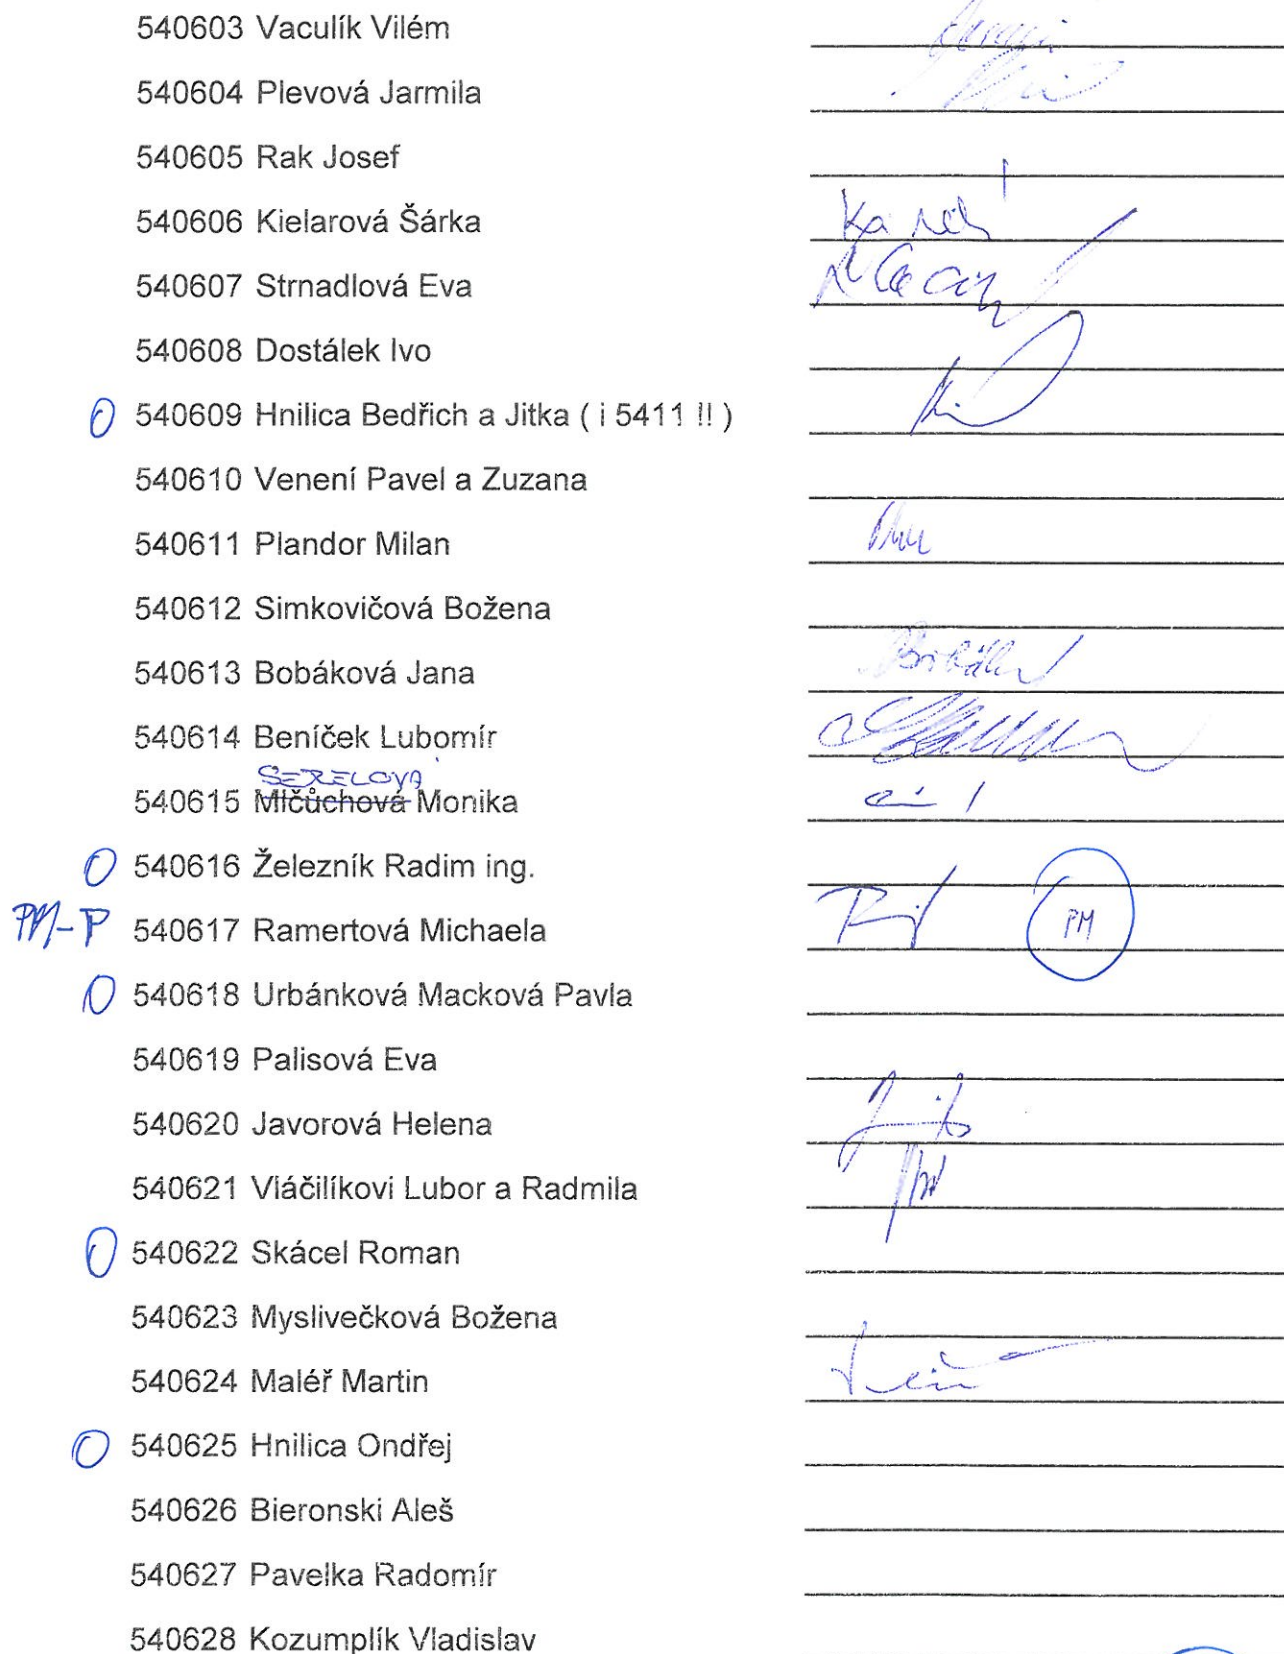 540603 Vaculík Vilém
540604 Plevová Jarmila
540605 Rak Josef
540606 Kielarová Šárka
540607 Strnadlová Eva
540608 Dostálek Ivo
0 540609 Hnilica Bedřich a Jitka ( i 5411 !! )
540610 Venení Pavel a Zuzana
540611 Plandor Milan
540612 Simkovičová Božena
540613 Bobáková Jana
540614 Beníček Lubomír
540615 Mlčůchová Monika
0 540616 Železník Radim ing.
PM-P 540617 Ramertová Michaela PM
0 540618 Urbánková Macková Pavla
540619 Palisová Eva
540620 Javorová Helena
540621 Vláčilíkovi Lubor a Radmila
0 540622 Skácel Roman
540623 Myslivečková Božena
540624 Maléř Martin
0 540625 Hnilica Ondřej
540626 Bieronski Aleš
540627 Pavelka Radomír
540628 Kozumplík Vladislav